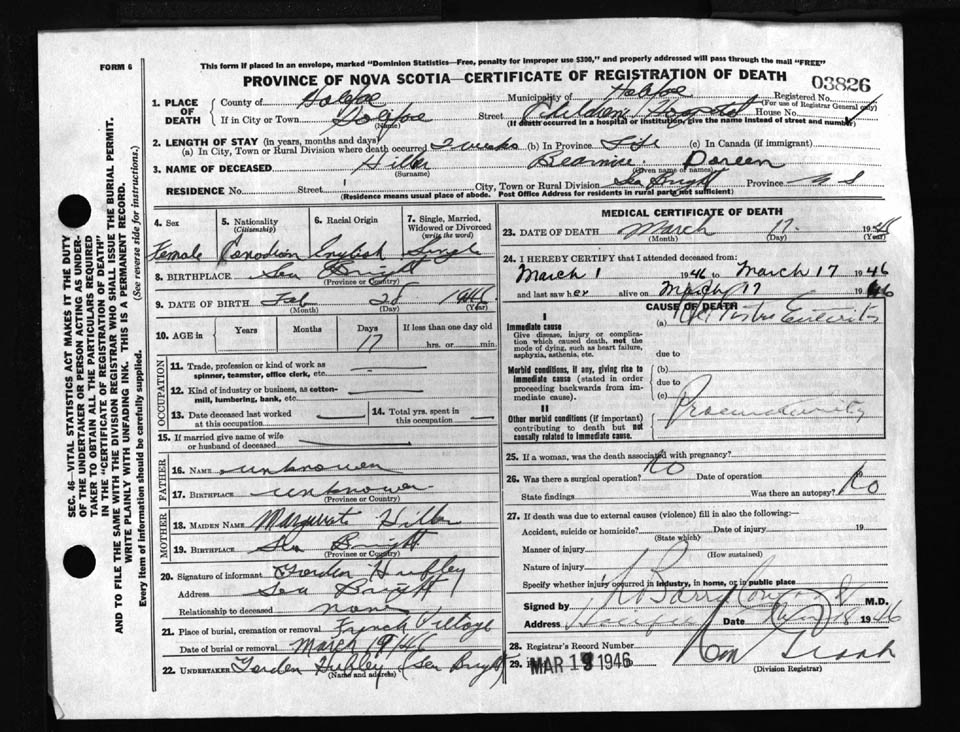 FORM 6
This form if placed in an envelope, marked "Dominion Statistics—Free, penalty for improper use $300," and properly addressed will pass through the mail "FREE"
PROVINCE OF NOVA SCOTIA—CERTIFICATE OF REGISTRATION OF DEATH
03826
1. PLACE OF DEATH
County of Halifax Municipality of Halifax Registered No.
(For use of Registrar General only)
If in City or Town Halifax Street Children Hospital House No.
(Name) (If death occurred in a hospital or institution, give the name instead of street and number)
2. LENGTH OF STAY (in years, months and days)
(a) In City, Town or Rural Division where death occurred 2 weeks (b) In Province Life (c) In Canada (if immigrant)
3. NAME OF DECEASED Doreen
(Surname) (Given name or names)
RESIDENCE No. Street City, Town or Rural Division Sea Bright Province N S
(Residence means usual place of abode. Post Office Address for residents in rural parts not sufficient)
4. Sex 5. Nationality (Citizenship) 6. Racial Origin 7. Single, Married, Widowed or Divorced (write the word)
Female Canadian English Single
8. BIRTHPLACE Sea Bright
(Province or Country)
9. DATE OF BIRTH Feb 28 1946
(Month) (Day) (Year)
10. AGE in Years Months Days If less than one day old
17 hrs. or min.
OCCUPATION
11. Trade, profession or kind of work as spinner, teamster, office clerk, etc.
12. Kind of industry or business, as cotton-mill, lumbering, bank, etc.
13. Date deceased last worked at this occupation
14. Total yrs. spent in this occupation
15. If married give name of wife or husband of deceased
FATHER
16. NAME unknowen
17. BIRTHPLACE unknowen
(Province or Country)
MOTHER
18. MAIDEN NAME
19. BIRTHPLACE Sea Bright
(Province or Country)
20. Signature of informant Gorden Hubley
Address Sea Bright
Relationship to deceased none
21. Place of burial, cremation or removal French Village
Date of burial or removal March 19/46
22. UNDERTAKER Gorden Hubley Sea Bright
(Name and address)
MEDICAL CERTIFICATE OF DEATH
23. DATE OF DEATH March 17 19
(Month) (Day) (Year)
24. I HEREBY CERTIFY that I attended deceased from:
March 1 1946 to March 17 1946
and last saw her alive on March 17 1946
CAUSE OF DEATH
I
Immediate cause
Give disease, injury or complication which caused death, not the mode of dying, such as heart failure, asphyxia, asthenia, etc.
(a)
due to
Morbid conditions, if any, giving rise to immediate cause (stated in order proceeding backwards from immediate cause).
(b)
due to
(c)
II
Other morbid conditions (if important) contributing to death but not causally related to immediate cause.
Praematurity
25. If a woman, was the death associated with pregnancy?
26. Was there a surgical operation? No Date of operation
State findings Was there an autopsy? No
27. If death was due to external causes (violence) fill in also the following:—
Accident, suicide or homicide? Date of injury 19
(State which)
Manner of injury
(How sustained)
Nature of injury
Specify whether injury occurred in industry, in home, or in public place
Signed by M.D.
Address Halifax Date 18 1946
28. Registrar's Record Number
29. MAR 19 1946
(Division Registrar)
SEC. 46—VITAL STATISTICS ACT MAKES IT THE DUTY
OF THE UNDERTAKER OR PERSON ACTING AS UNDER-
TAKER TO OBTAIN ALL THE PARTICULARS REQUIRED
IN THE "CERTIFICATE OF REGISTRATION OF DEATH"
AND TO FILE THE SAME WITH THE DIVISION REGISTRAR WHO SHALL ISSUE THE BURIAL PERMIT.
WRITE PLAINLY WITH UNFADING INK. THIS IS A PERMANENT RECORD.
Every item of information should be carefully supplied. (See reverse side for instructions.)